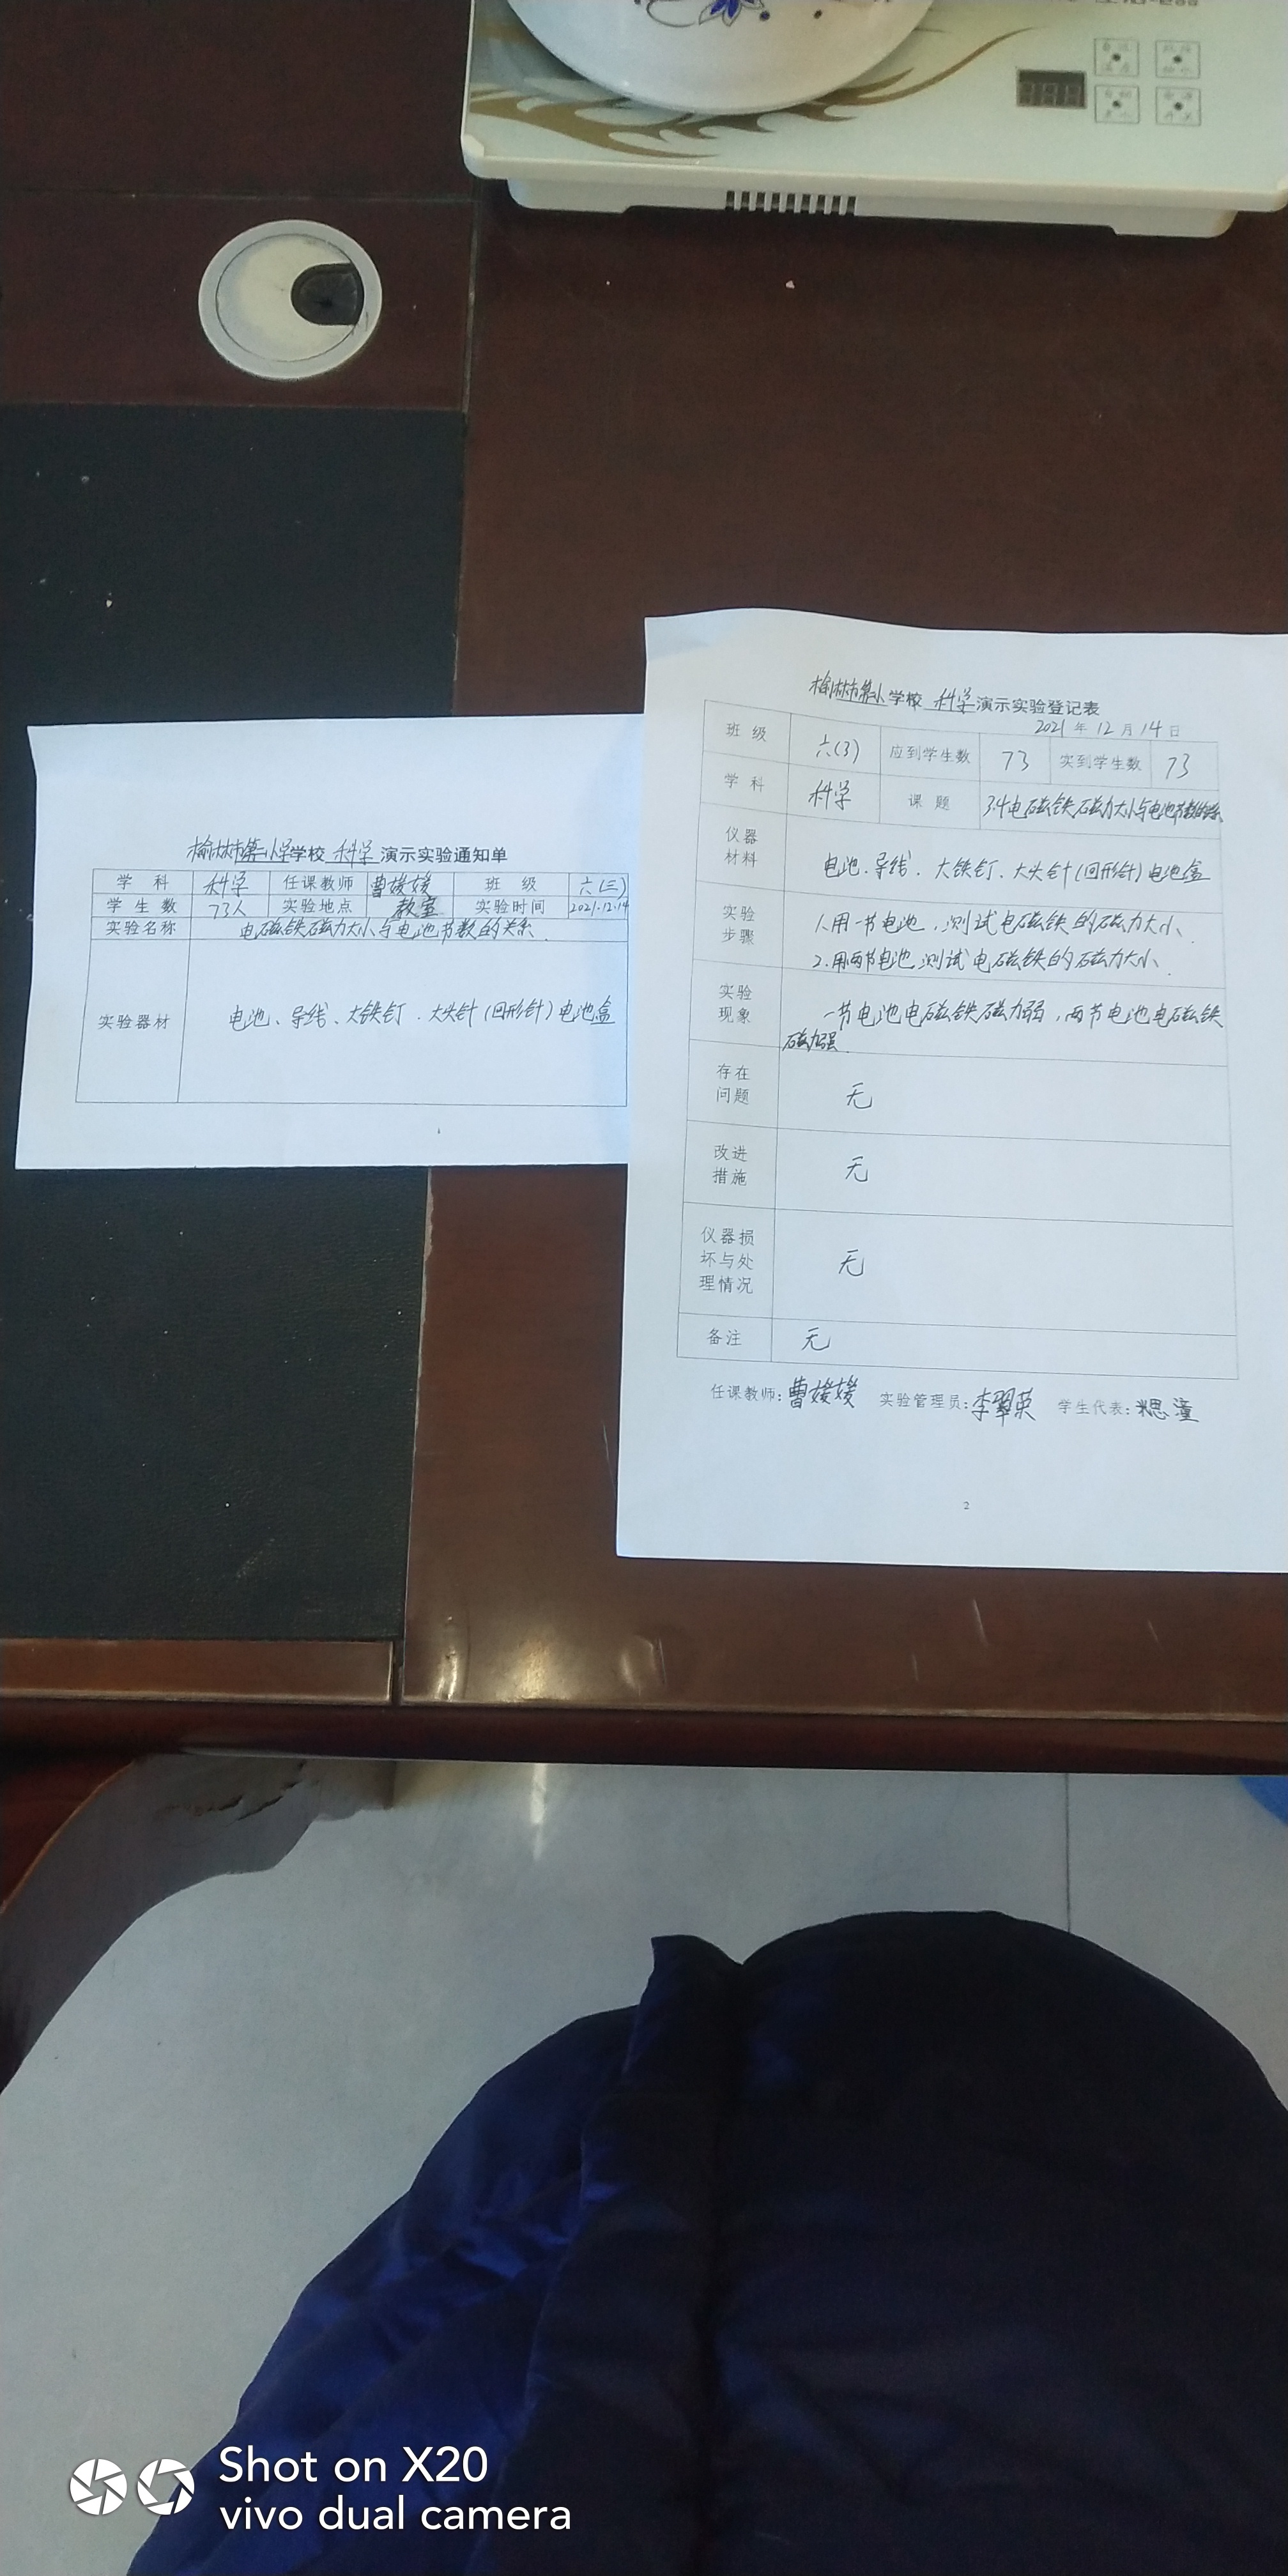 榆林市第小学学校 科学 演示实验通知单
学科 科学 任课教师 曹媛媛 班级 六(三)
学生数 73人 实验地点 教室 实验时间 2021.12.14
实验名称 电磁铁磁力大小与电池节数的关系.
实验器材 电池、导线、大铁钉、大头针(回形针)电池盒
榆林市第小学校 科学 演示实验登记表
2021年12月14日
班级 六(3) 应到学生数 73 实到学生数 73
学科 科学 课题 3.4电磁铁磁力大小与电池节数的关系
仪器
材料
电池、导线、大铁钉、大头针(回形针)电池盒
实验
步骤
1.用一节电池,测试电磁铁的磁力大小.
2.用两节电池测试电磁铁的磁力大小.
实验
现象
一节电池电磁铁磁力弱,两节电池电磁铁
磁力强.
存在
问题
无
改进
措施
无
仪器损
坏与处
理情况
无
备注 无
任课教师:曹媛媛 实验管理员:李翠英 学生代表:思潼
2
Shot on X20
vivo dual camera